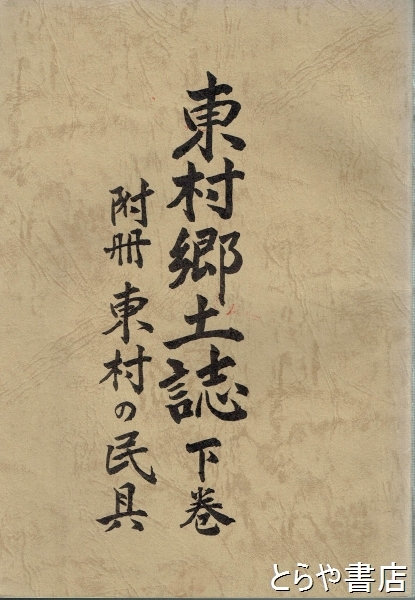 東村郷土誌 下巻
附册 東村の民具
とらや書店